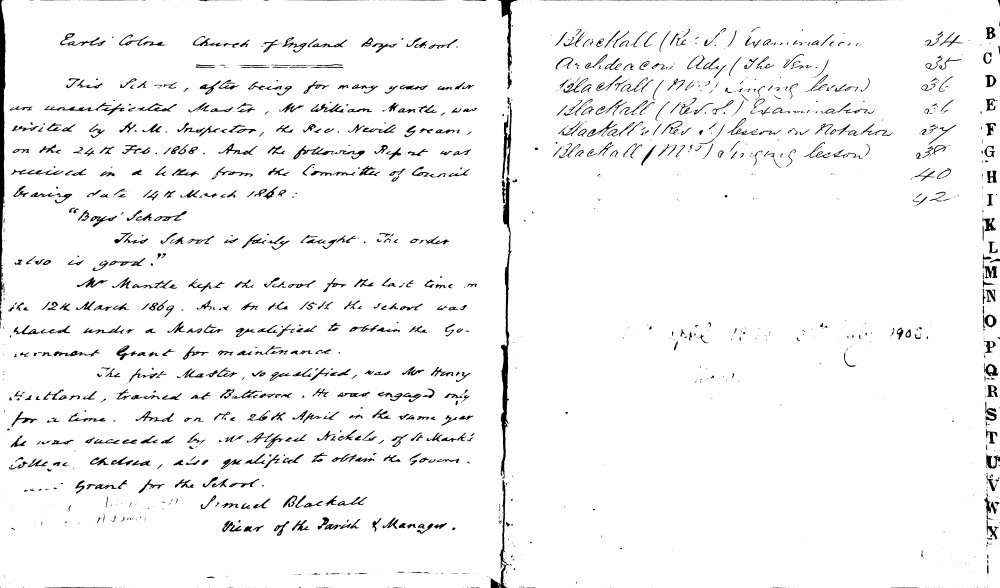 Earls Colne Church of England Boys' School.
This School, after being for many years under
an uncertificated Master, Mr William Mantle, was
visited by H. M. Inspector, the Rev. Nevile Gream,
on the 24th Feb. 1868. And the following Report was
received in a letter from the Committee of Council
bearing date 14th March 1868:
"Boys' School
This School is fairly taught. The order
also is good."
Mr Mantle kept the School for the last time on
the 12th March 1869. And on the 15th the school was
placed under a Master qualified to obtain the Go-
vernment Grant for maintenance.
The first Master, so qualified, was Mr Henry
Hartland, trained at Battersea. He was engaged only
for a time. And on the 26th April in the same year
he was succeeded by Mr Alfred Nickels, of St Mark's
College, Chelsea, also qualified to obtain the Govern-
Grant for the School.
Samuel Blackall
Vicar of the Parish & Manager.
Blackall (Re: S.) Examination 34
Archdeacon Ady (The Ven.) 35
Blackall (Mrs) Singing lesson 36
Blackall (Rev. S.) Examination 36
Blackall (Rev. S.) lesson on Notation 37
Blackall (Mrs) Singing lesson 38
40
42
1903.
B
C
D
E
F
G
H
I
K
L
M
N
O
P
Q
R
S
T
U
V
W
X